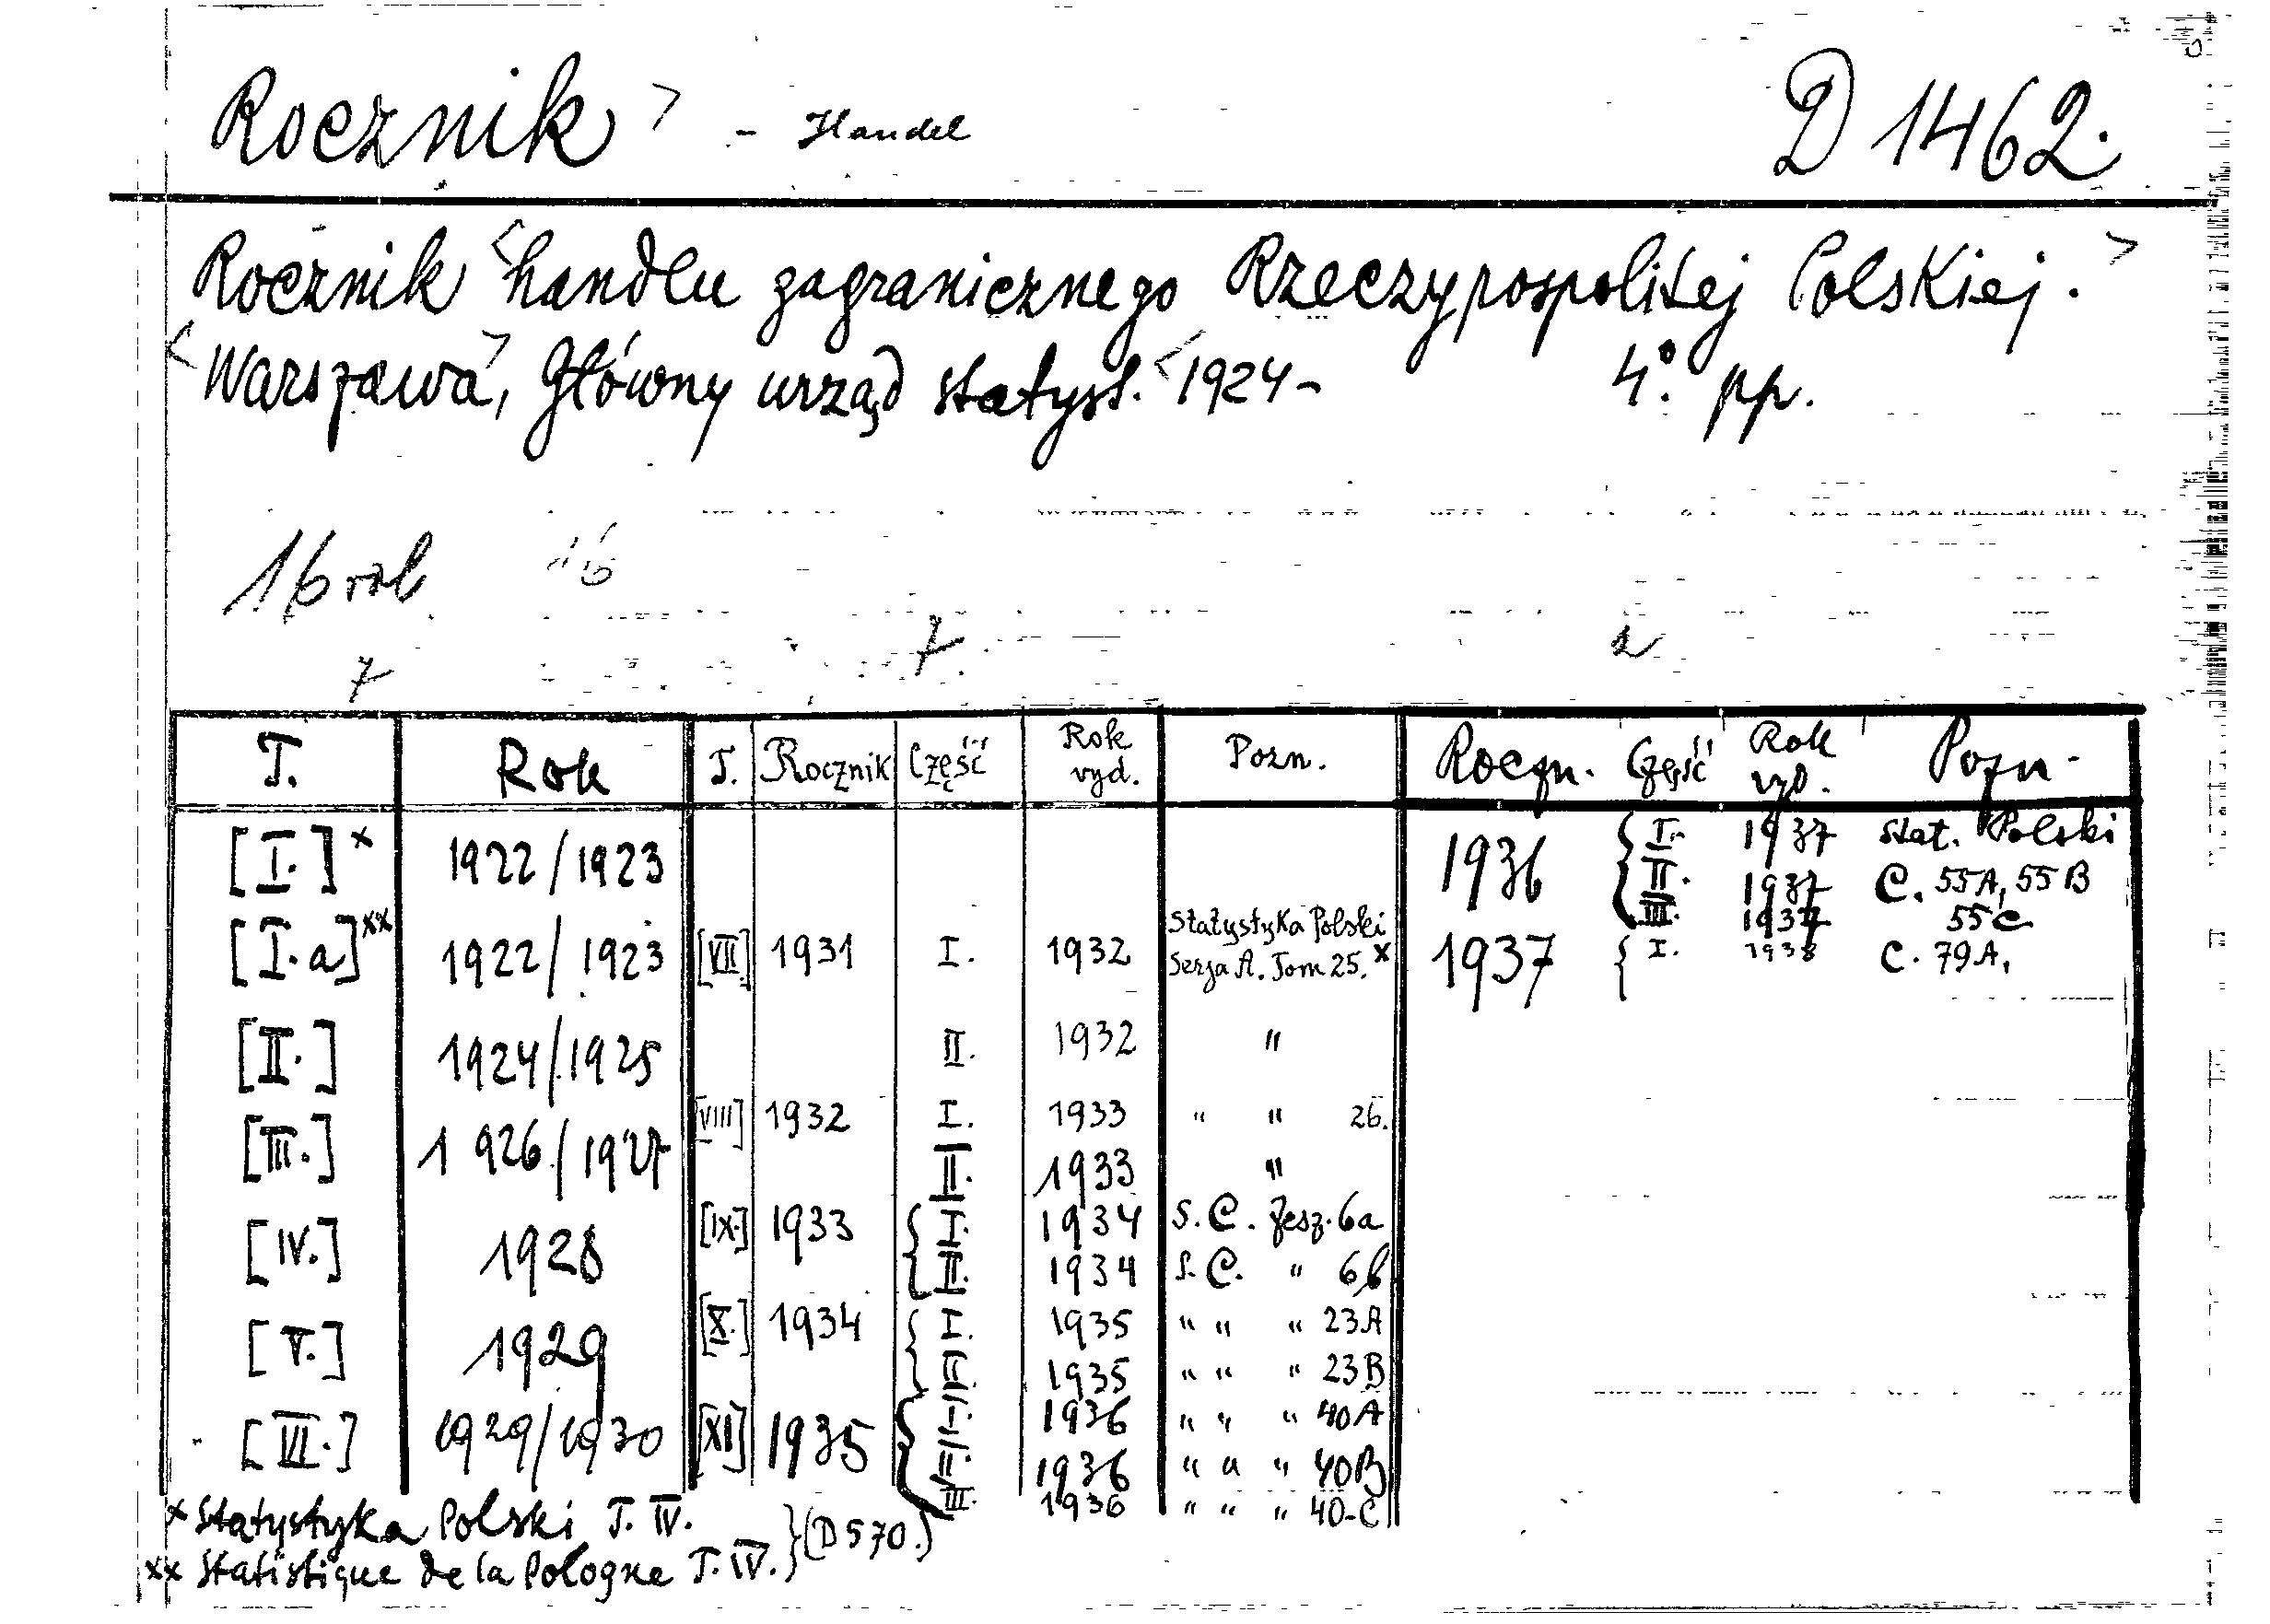 Rocznik > - Handel D 1462.
Rocznik <handlu zagranicznego Rzeczypospolitej Polskiej. >
<Warszawa>, Główny urząd statyst. <1924- 4°. pp.
16
7 7. 2
T. Rok T. Rocznik Część Rok vyd. Pozn. Roczn. Część Rok vyd. Pozn.
[I.]x 1922/1923 1936 { I. 1937 Stat. Polski
II. 1937 C. 55A, 55B
III. 1937 55C
[I.a]xx 1922/1923 [VII.] 1931 I. 1932 Statystyka Polski Serja A. Tom 25.x 1937 { I. 1938 C. 79A,
[II.] 1924/1925 II. 1932 "
[III.] 1926/1927 [VIII] 1932 I. 1933 " " 26.
II. 1933 "
[IV.] 1928 [IX.] 1933 { I. 1934 S. C. Zesz. 6a
II. 1934 S. C. " 6b
[V.] 1929 [X.] 1934 { I. 1935 " " " 23A
II. 1935 " " " 23B
[VI.] 1929/1930 [XI] 1935 { I. 1936 " " " 40A
II. 1936 " " " 40B
III. 1936 " " " 40-C
x Statystyka Polski T. IV.
xx Statistique de la Pologne T. IV. } (D 570.)